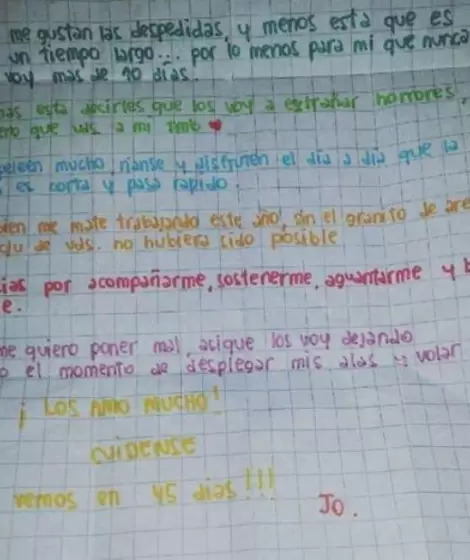 me gustan las despedidas, y menos esta que es
un tiempo largo... por lo menos para mi que nunca
voy mas de 10 dias.
mas esta decirles que los voy a extrañar horrores,
que uds a mi
mucho, rianse y disfruten el dia a dia que la
es corta y pasa rapido.
me mate trabajando este año, sin el granito de are
de uds. no hubiera sido posible
ias por acompañarme, sostenerme, aguantarme y b
e.
me quiero poner mal, asique los voy dejando
o el momento de desplegar mis alas y volar
¡ LOS AMO MUCHO!
CUIDENSE
vemos en 45 dias !!!
Jo.